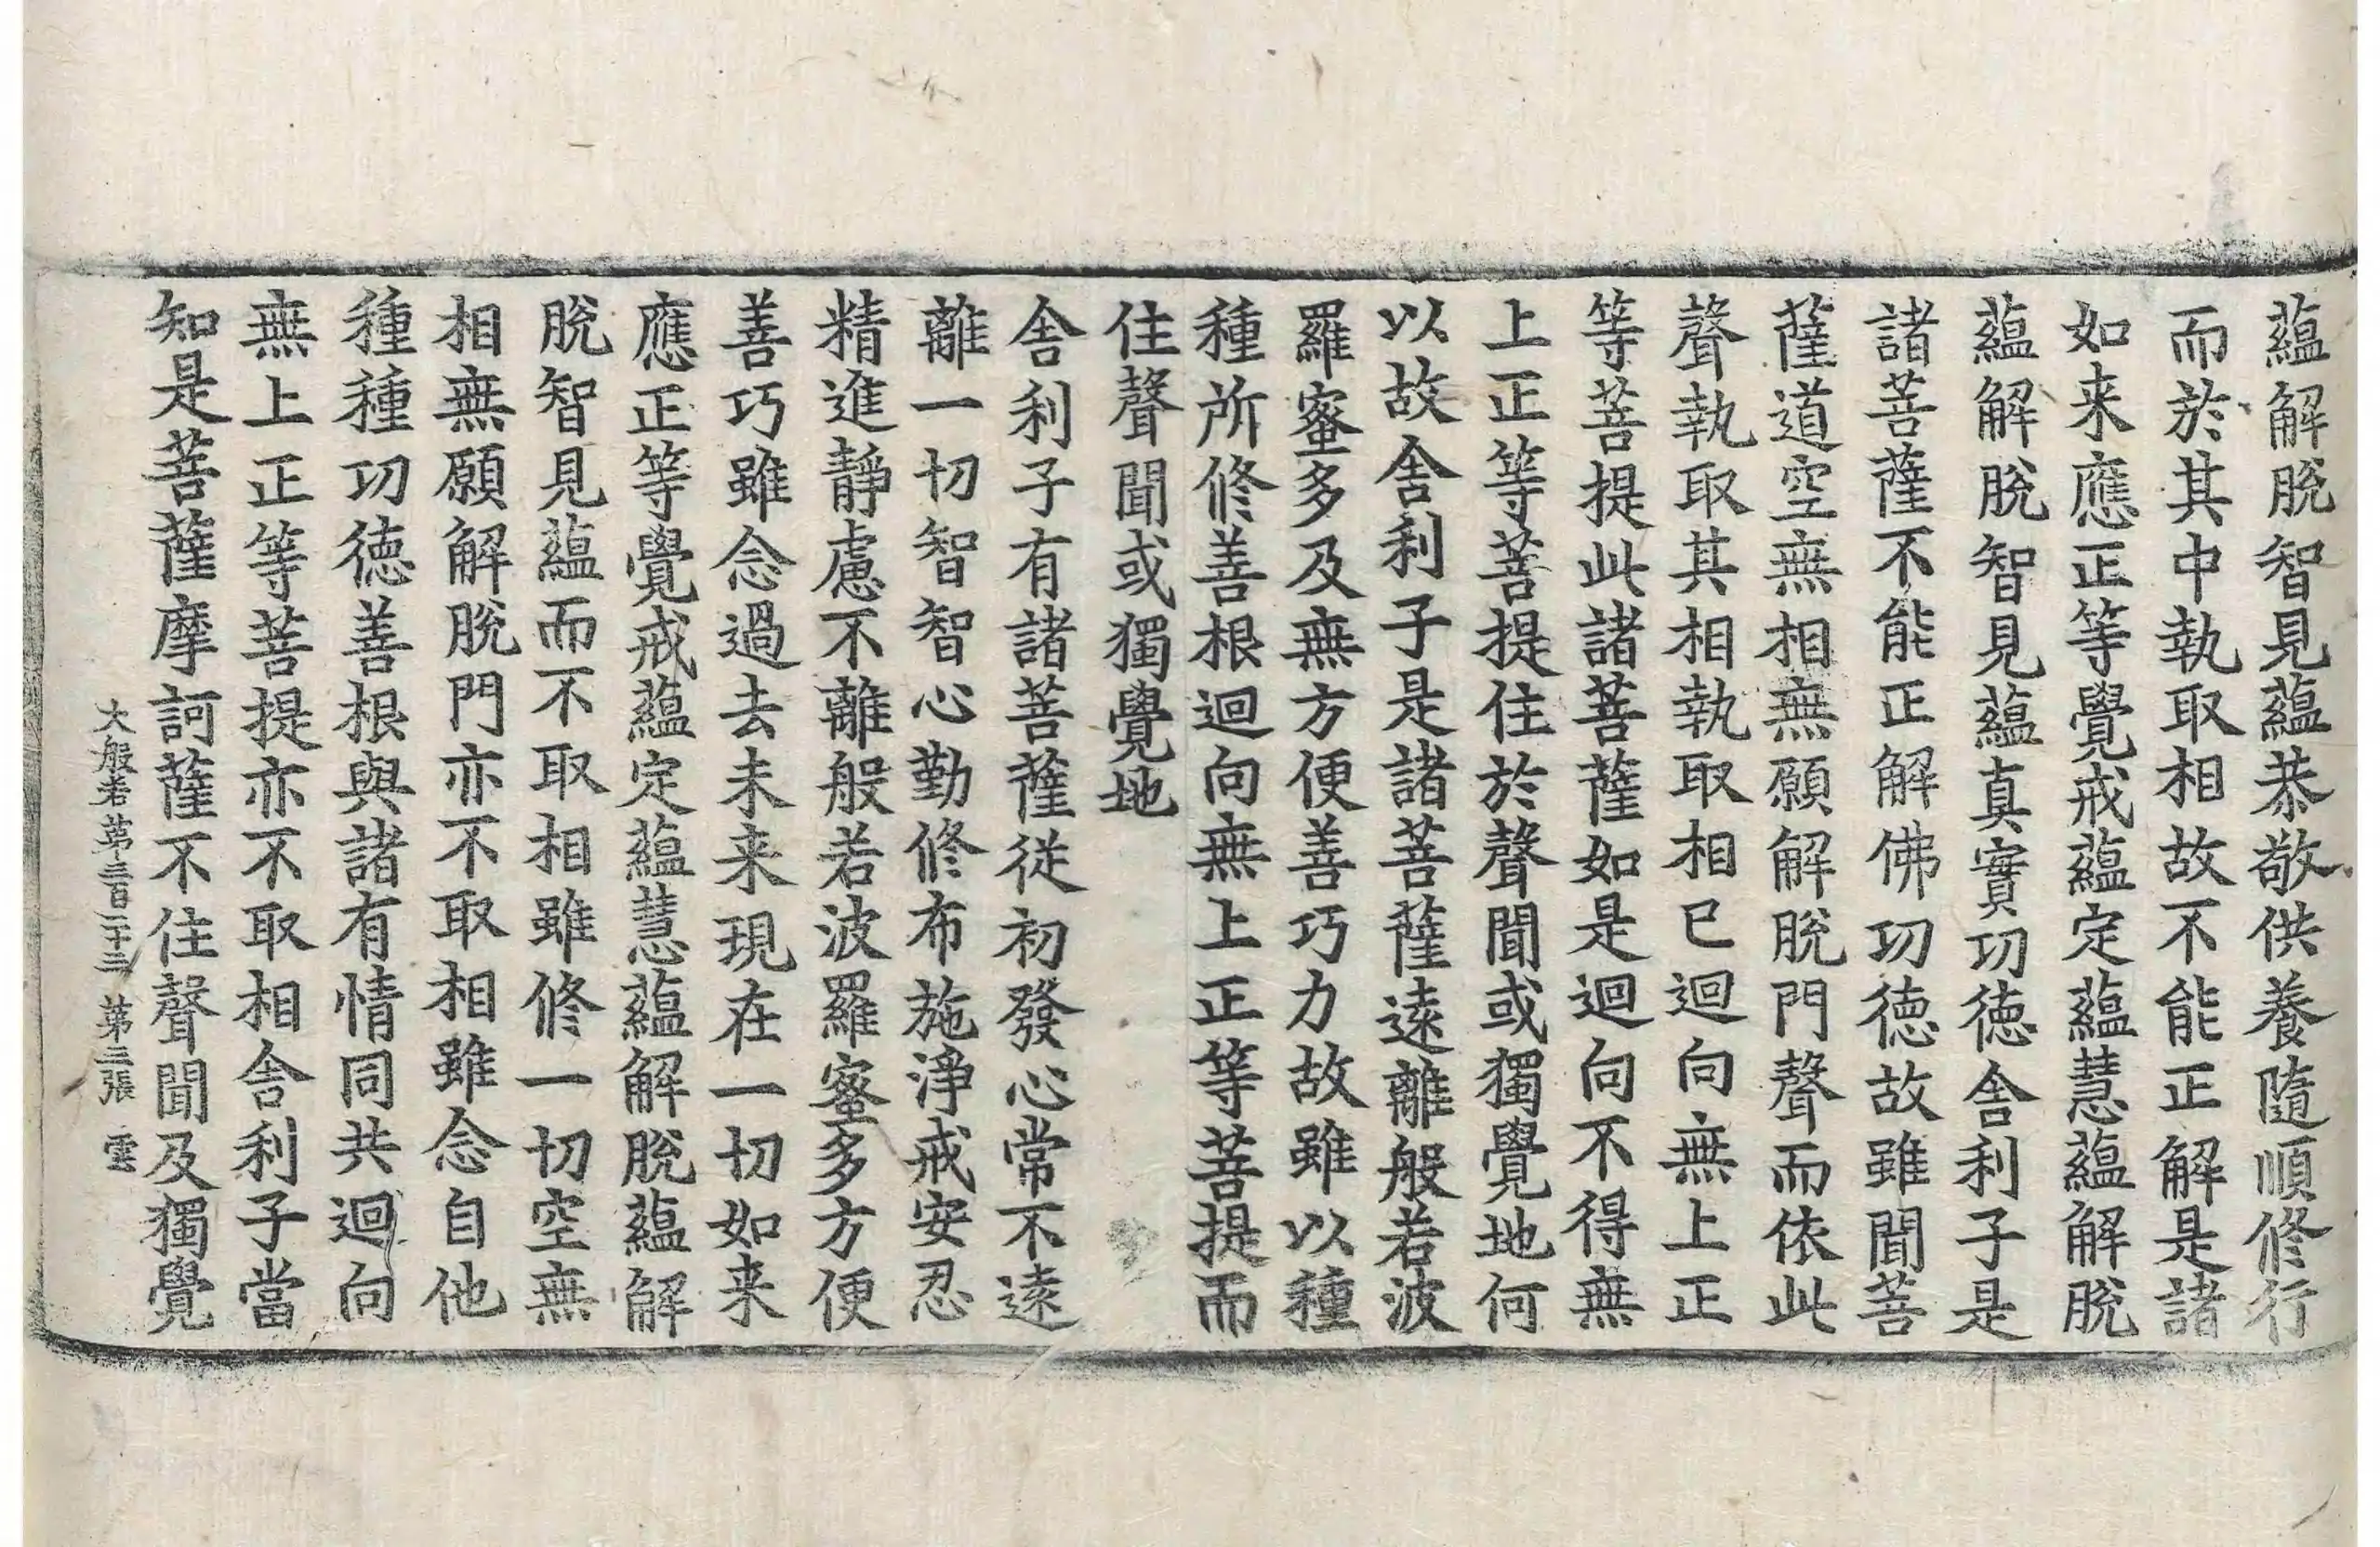 蘊解脫智見蘊恭敬供養隨順修行
而於其中執取相故不能正解是諸
如来應正等覺戒蘊定蘊慧蘊解脫
蘊解脫智見蘊真實功德舍利子是
諸菩薩不能正解佛功德故雖聞菩
薩道空無相無願解脫門聲而依此
聲執取其相執取相已迴向無上正
等菩提此諸菩薩如是迴向不得無
上正等菩提住於聲聞或獨覺地何
以故舍利子是諸菩薩遠離般若波
羅蜜多及無方便善巧力故雖以種
種所修善根迴向無上正等菩提而
住聲聞或獨覺地
舍利子有諸菩薩從初發心常不遠
離一切智智心勤修布施淨戒安忍
精進靜慮不離般若波羅蜜多方便
善巧雖念過去未来現在一切如来
應正等覺戒蘊定蘊慧蘊解脫蘊解
脫智見蘊而不取相雖修一切空無
相無願解脫門亦不取相雖念自他
種種功德善根與諸有情同共迴向
無上正等菩提亦不取相舍利子當
知是菩薩摩訶薩不住聲聞及獨覺
大般若第三百二十三 第二張 雲